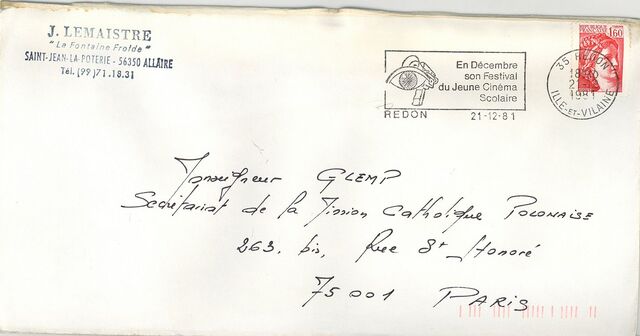 J. LEMAISTRE
"La Fontaine Froide"
SAINT-JEAN-LA-POTERIE - 56350 ALLAIRE
Tél. (99) 71.18.31
En Décembre
son Festival
du Jeune Cinéma
Scolaire
REDON 21-12-81
35 REDON
18H30
21-12
1981
ILLE-ET-VILAINE
1,60
Monseigneur GLEMP
Secrétariat de la Mission Catholique POLONAISE
263, bis, Rue St Honoré
75001 PARIS